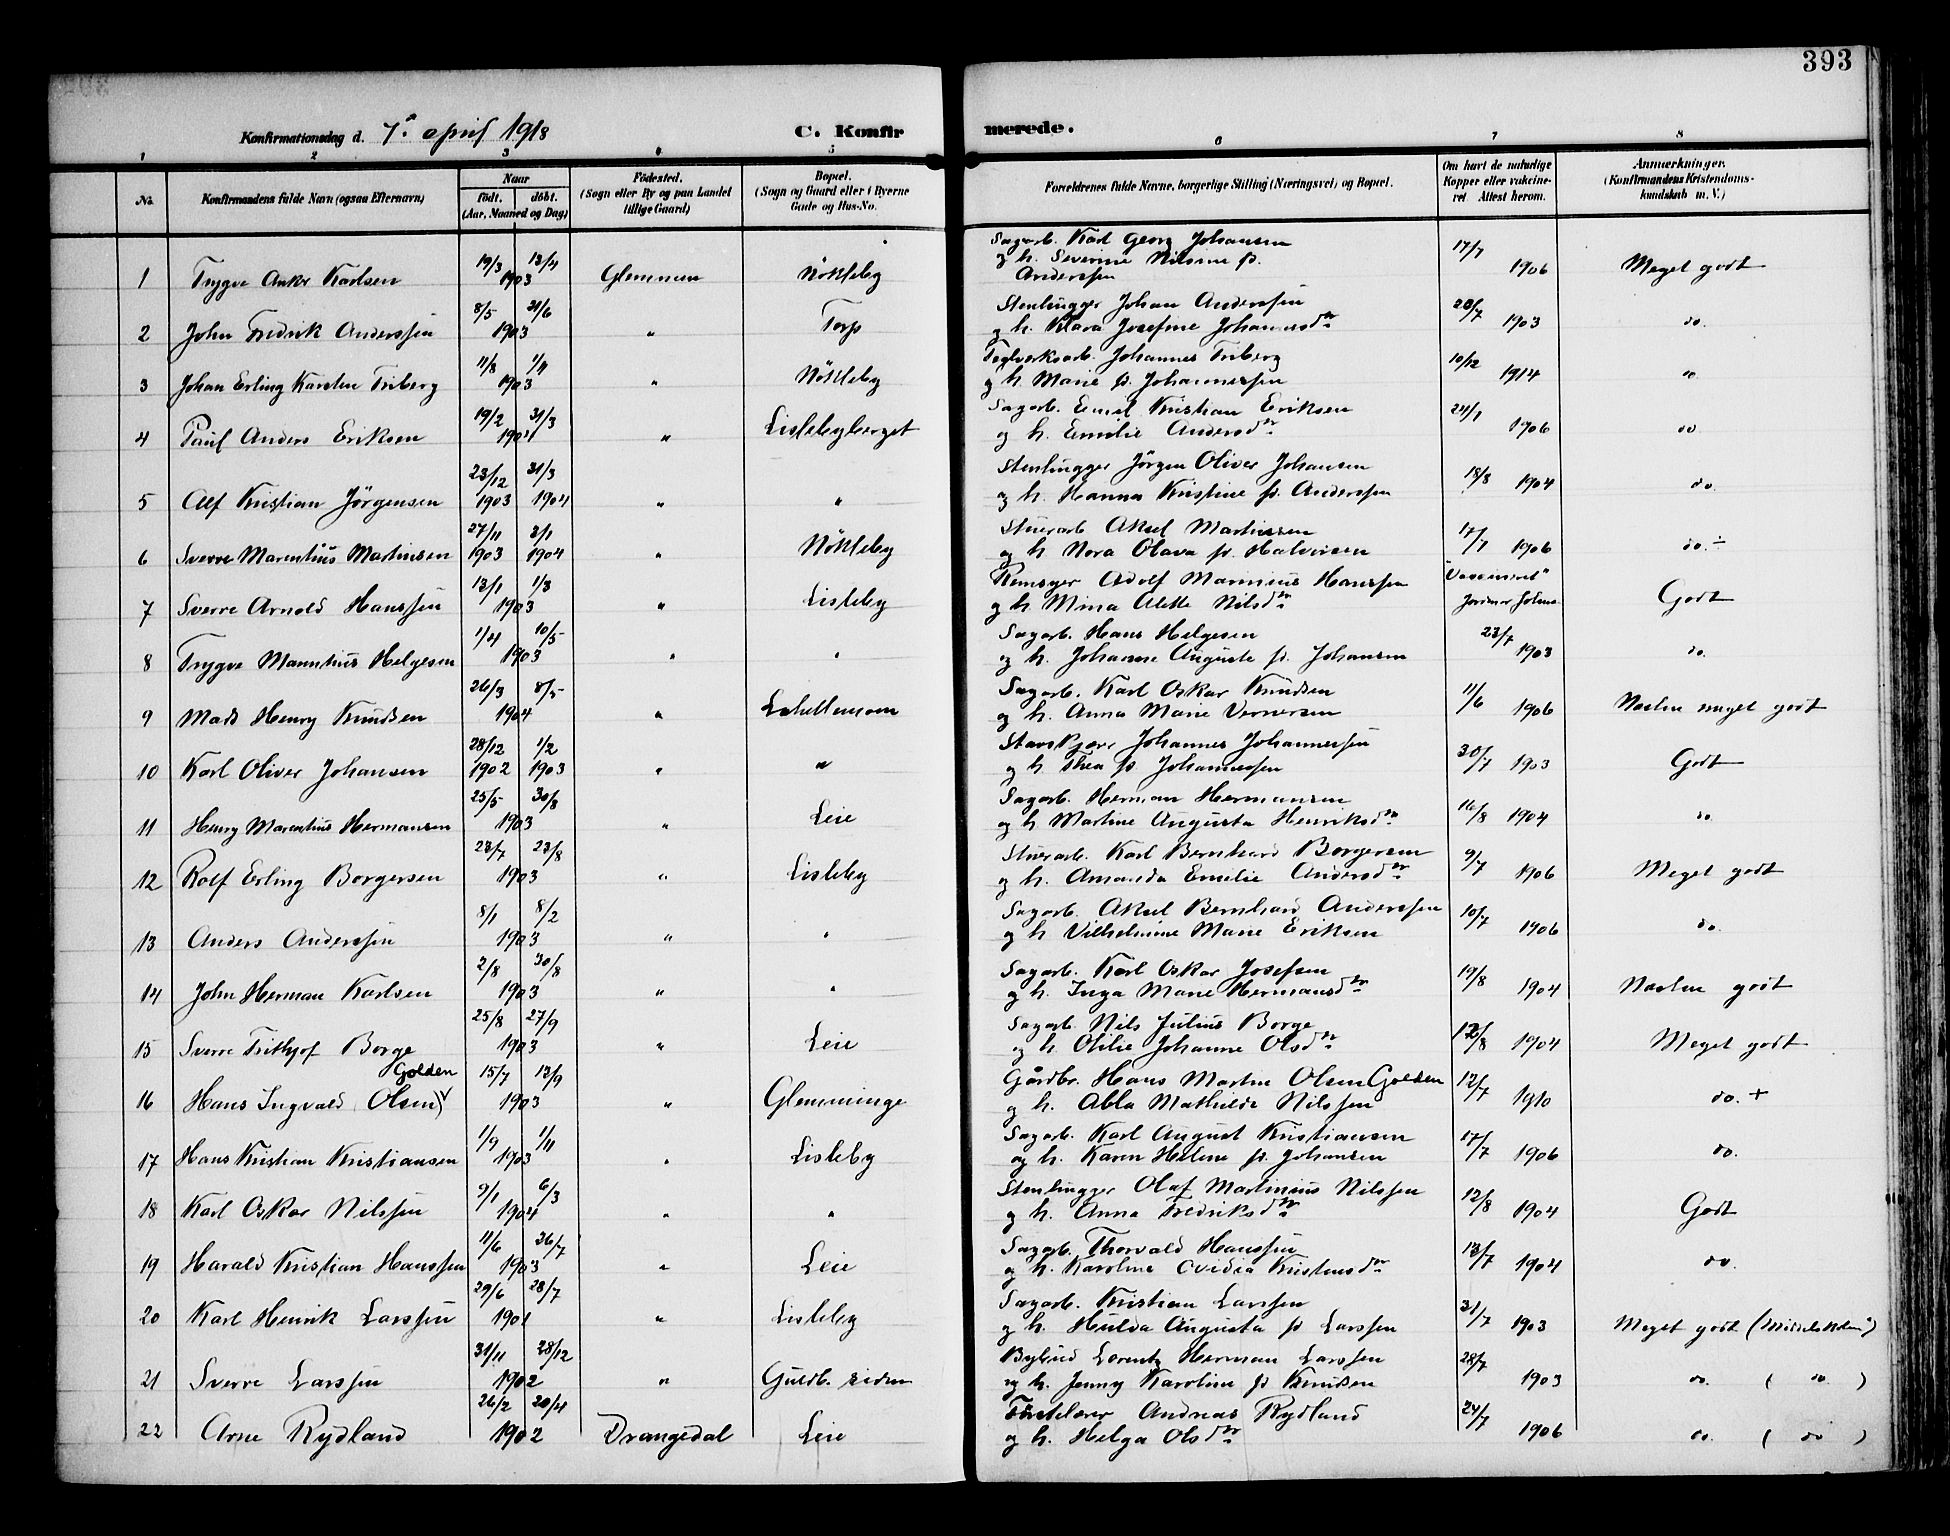 393
Konfirmationsdag d. 7de april 1918 C. Konfirmerede.
1 2 3 4 5 6 7 8
No. Konfirmandens fulde Navn (ogsaa Efternavn) Naar født. døbt. (Aar, Maaned og Dag) Fødested. (Sogn eller By og paa Landet tillige Gaard) Bopæl. (Sogn og Gaard eller i Byerne Gade og Hus-No. Forældrenes fulde Navne, borgerlige Stilling (Næringsvei) og Bopæl. Om havt de naturlige Kopper eller vakcineret Attest herom. Anmærkninger. (Konfirmandens Kristendomskundskab m. V.)
1 Trygve Anker Karlsen 19/3 13/4 1903 Glemmen Nökleby Sagarb. Karl Georg Johansen og h. Severine Nilsine f. Anderssen 17/7 1906 Meget godt
2 John Fredrik Anderssen 8/5 21/6 1903 " Torp Stenhugger Johan Anderssen og h. Klara Josefine Johannesdr 20/7 1903 do.
3 Johan Erling Karsten Friberg 11/8 1/4 1903 " Nökleby Teglverksarb. Johannes Friberg og h. Marie f. Johannessen 10/12 1914 do
4 Paul Anders Eriksen 19/2 31/3 1901 " Lislebyberget Sagarb. Emil Kristian Eriksen og h. Emilie Andersdr 24/1 1906 do
5 Alf Kristian Jörgensen 23/12 1903 31/3 1904 " " Stenhugger Jörgen Oliver Johansen og h. Hanna Kristine f. Anderssen 18/8 1904 do.
6 Sverre Marentius Martinsen 27/11 1903 3/1 1904 " Nökleby Stuerarb Aksel Martinssen og h Nora Olava f. Halvorsen 17/7 1906 do. ÷
7 Sverre Arnold Hanssen 13/1 1/3 1903 " Lisleby Remsyer Adolf Marinius Hanssen og h Mina Alette Nilsdr "Vaccineret" Godt
8 Trygve Marentius Helgesen 1/4 10/5 1903 " " Sagarb. Hans Helgesen og h. Johanne Auguste f. Johansen 23/7 1903 do.
9 Mads Henry Knudsen 26/3 8/5 1904 " Sagarb. Karl Oskar Knudsen og h. Anna Marie Vernersen 11/6 1906 Næsten meget godt
10 Karl Oliver Johansen 28/12 1902 1/2 1903 " " Johannes Johannessen og h Thea f. Johannessen 30/7 1903 Godt
11 Henry Marentius Hermansen 25/5 30/8 1903 " Leie Sagarb. Herman Hermansen og h Martine Augusta Henriksdr 16/8 1904 do
12 Rolf Erling Borgersen 23/7 23/8 1903 " Lisleby Stuerarb. Karl Bernhard Borgersen og h. Amanda Emilie Andersdr 9/7 1906 Meget godt
13 Anders Anderssen 8/1 8/2 1903 " " Sagarb. Aksel Bernhard Anderssen og h Vilhelmine Marie Eriksen 10/7 1906 do.
14 John Herman Karlsen 2/8 30/8 1903 " " Sagarb. Karl Oskar Josefsen og h. Inga Marie Hermansdr 19/8 1904 Næsten godt
15 Sverre Frithjof Borge 25/8 27/9 1903 " Leie Sagarb. Nils Julius Borge og h Otilie Johanne Olsdr 1904 Meget godt
16 Hans Ingvald Olsen) Golden 15/7 13/9 1903 " Glemminge Gårdbr. Hans Martin Olsen Golden og h. Abla Mathilde Nilssen 12/7 1910 do. +
17 Hans Kristian Kristiansen 1/9 1/11 1903 " Lisleby Sagarb. Karl August Kristiansen og h. Karen Helene f. Johansen 17/7 1906 do.
18 Karl Oskar Nilssen 9/1 6/3 1904 " " Stenhugger Olaf Martinius Nilssen og h. Anna Fredriksdr 12/8 1904 Godt
19 Harald Kristian Hanssen 11/6 26/7 1903 " Leie Sagarb. Thorvald Hanssen og h. Karoline Ovidia Kristensdr 13/7 1904 do.
20 Karl Henrik Larssen 29/6 28/7 1901 " Lisleby Sagarb. Kristian Larssen og h. Hulda Augusta f. Larssen 31/7 1903 Meget godt (Middelskolen)
21 Sverre Larssen 31/11 28/12 1902 " Guldb. siden Bybud Lorentz Herman Larssen og h. Jenny Karoline f. Knudsen 28/7 1903 do. ( do. )
22 Arne Rydland 26/2 20/4 1902 Drangedal Leie Förstelærer Andreas Rydland og h. Helga Olsdr 24/7 1906 do. ( do )